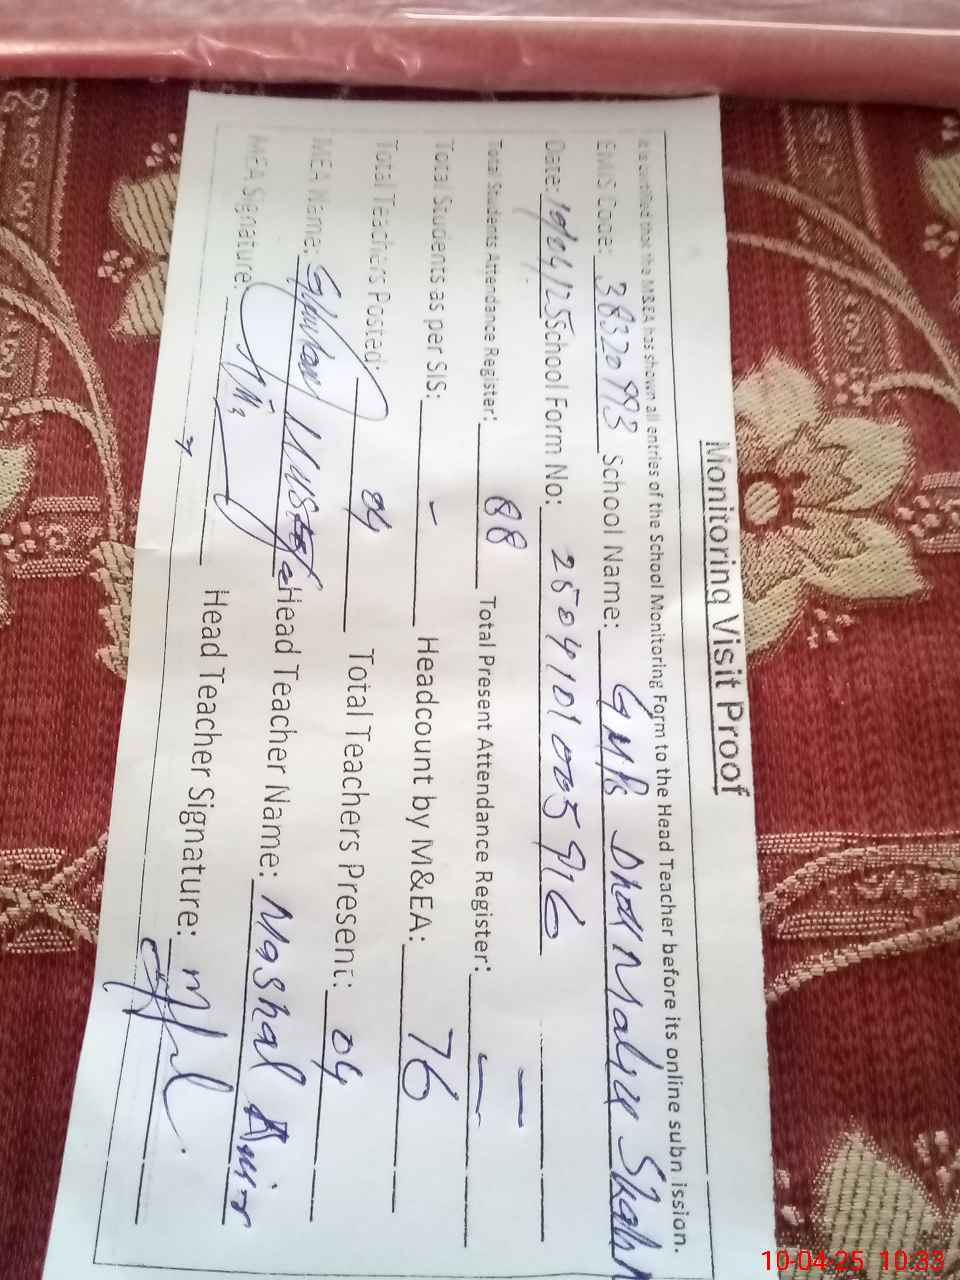 Monitoring Visit Proof
It is certified that the M&EA has shown all entries of the School Monitoring Form to the Head Teacher before its online submission.
EMIS Code: 38320993 School Name: GMPS Dhdr Malru Shah
Date: 10/04/25 School Form No: 25041010005916 —
Total Students Attendance Register: 88 Total Present Attendance Register: —
Total Students as per SIS: — Headcount by M&EA: 76
Total Teachers Posted: 04 Total Teachers Present: 04
MEA Name: Ghulam Mustafa Head Teacher Name: Mashal
MEA Signature: Head Teacher Signature:
10-04-25 10:33